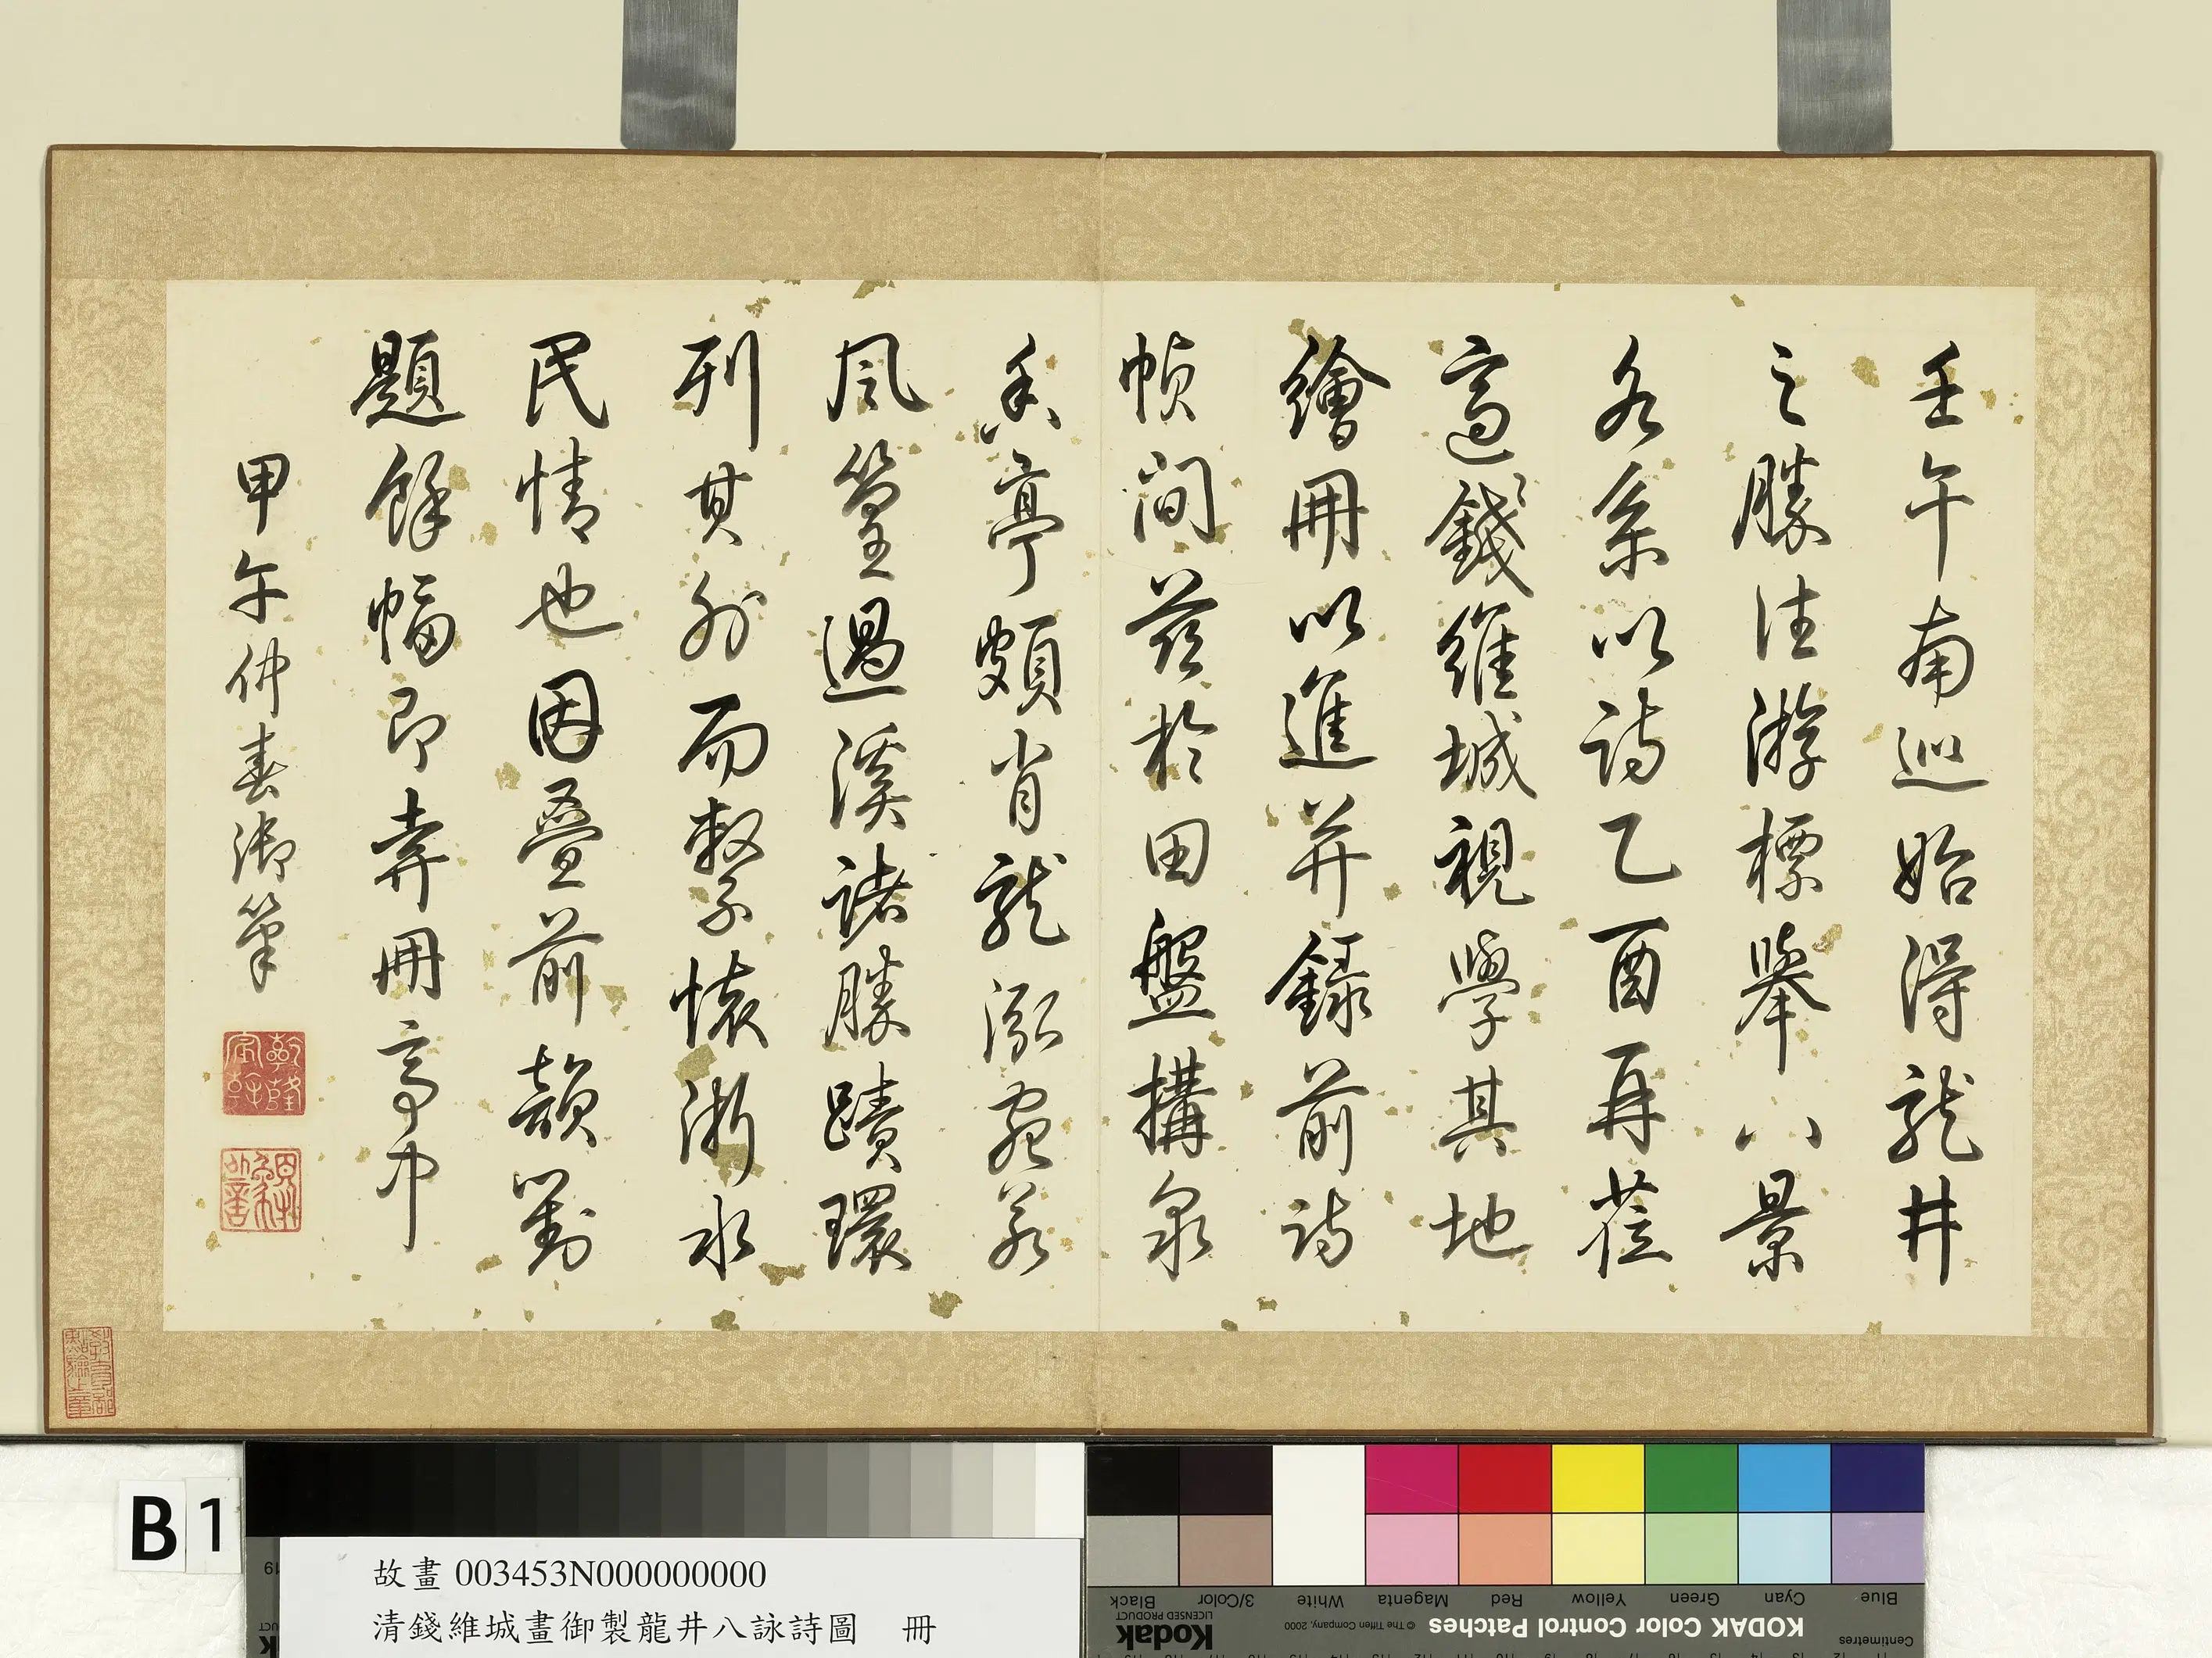 壬午南巡始得龍井
之勝徍游標舉八景
各系以詩乙酉再蒞
適錢維城視學其地
繪冊以進并錄前詩
幀間茲於田盤搆泉
香亭頗肖龍泓宛若
風篁過溪諸勝蹟環
列其外而轂懷浙水
民情也因疊前韻對
題餘幅即弆冊亭中
甲午仲春御筆
乾隆
宸翰
教育部
點驗之章
B 1
故畫 003453N000000000
清錢維城畫御製龍井八詠詩圖 冊
Blue Cyan Green Yellow Red Magenta White 3/Color Black
KODAK Color Control Patches
© The Tiffen Company, 2000
Kodak
LICENSED PRODUCT
Centimetres